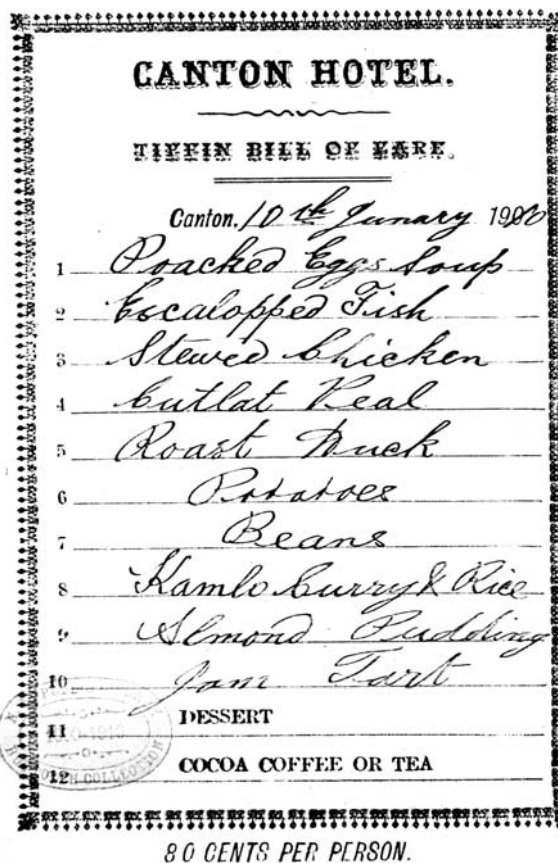 CANTON HOTEL.
TIFFIN BILL OF FARE.
Canton. 10th Junary 190
1 Poacked Eggs Soup
2 Escalopped Fish
3 Stewed Chicken
4 Cutlat Veal
5 Roast Duck
6 Potatoes
7 Beans
8 Kamlo Curry & Rice
9 Almond Pudding
10 Jam Tart
11 DESSERT
12 COCOA COFFEE OR TEA
COLLECTION
80 CENTS PER PERSON.